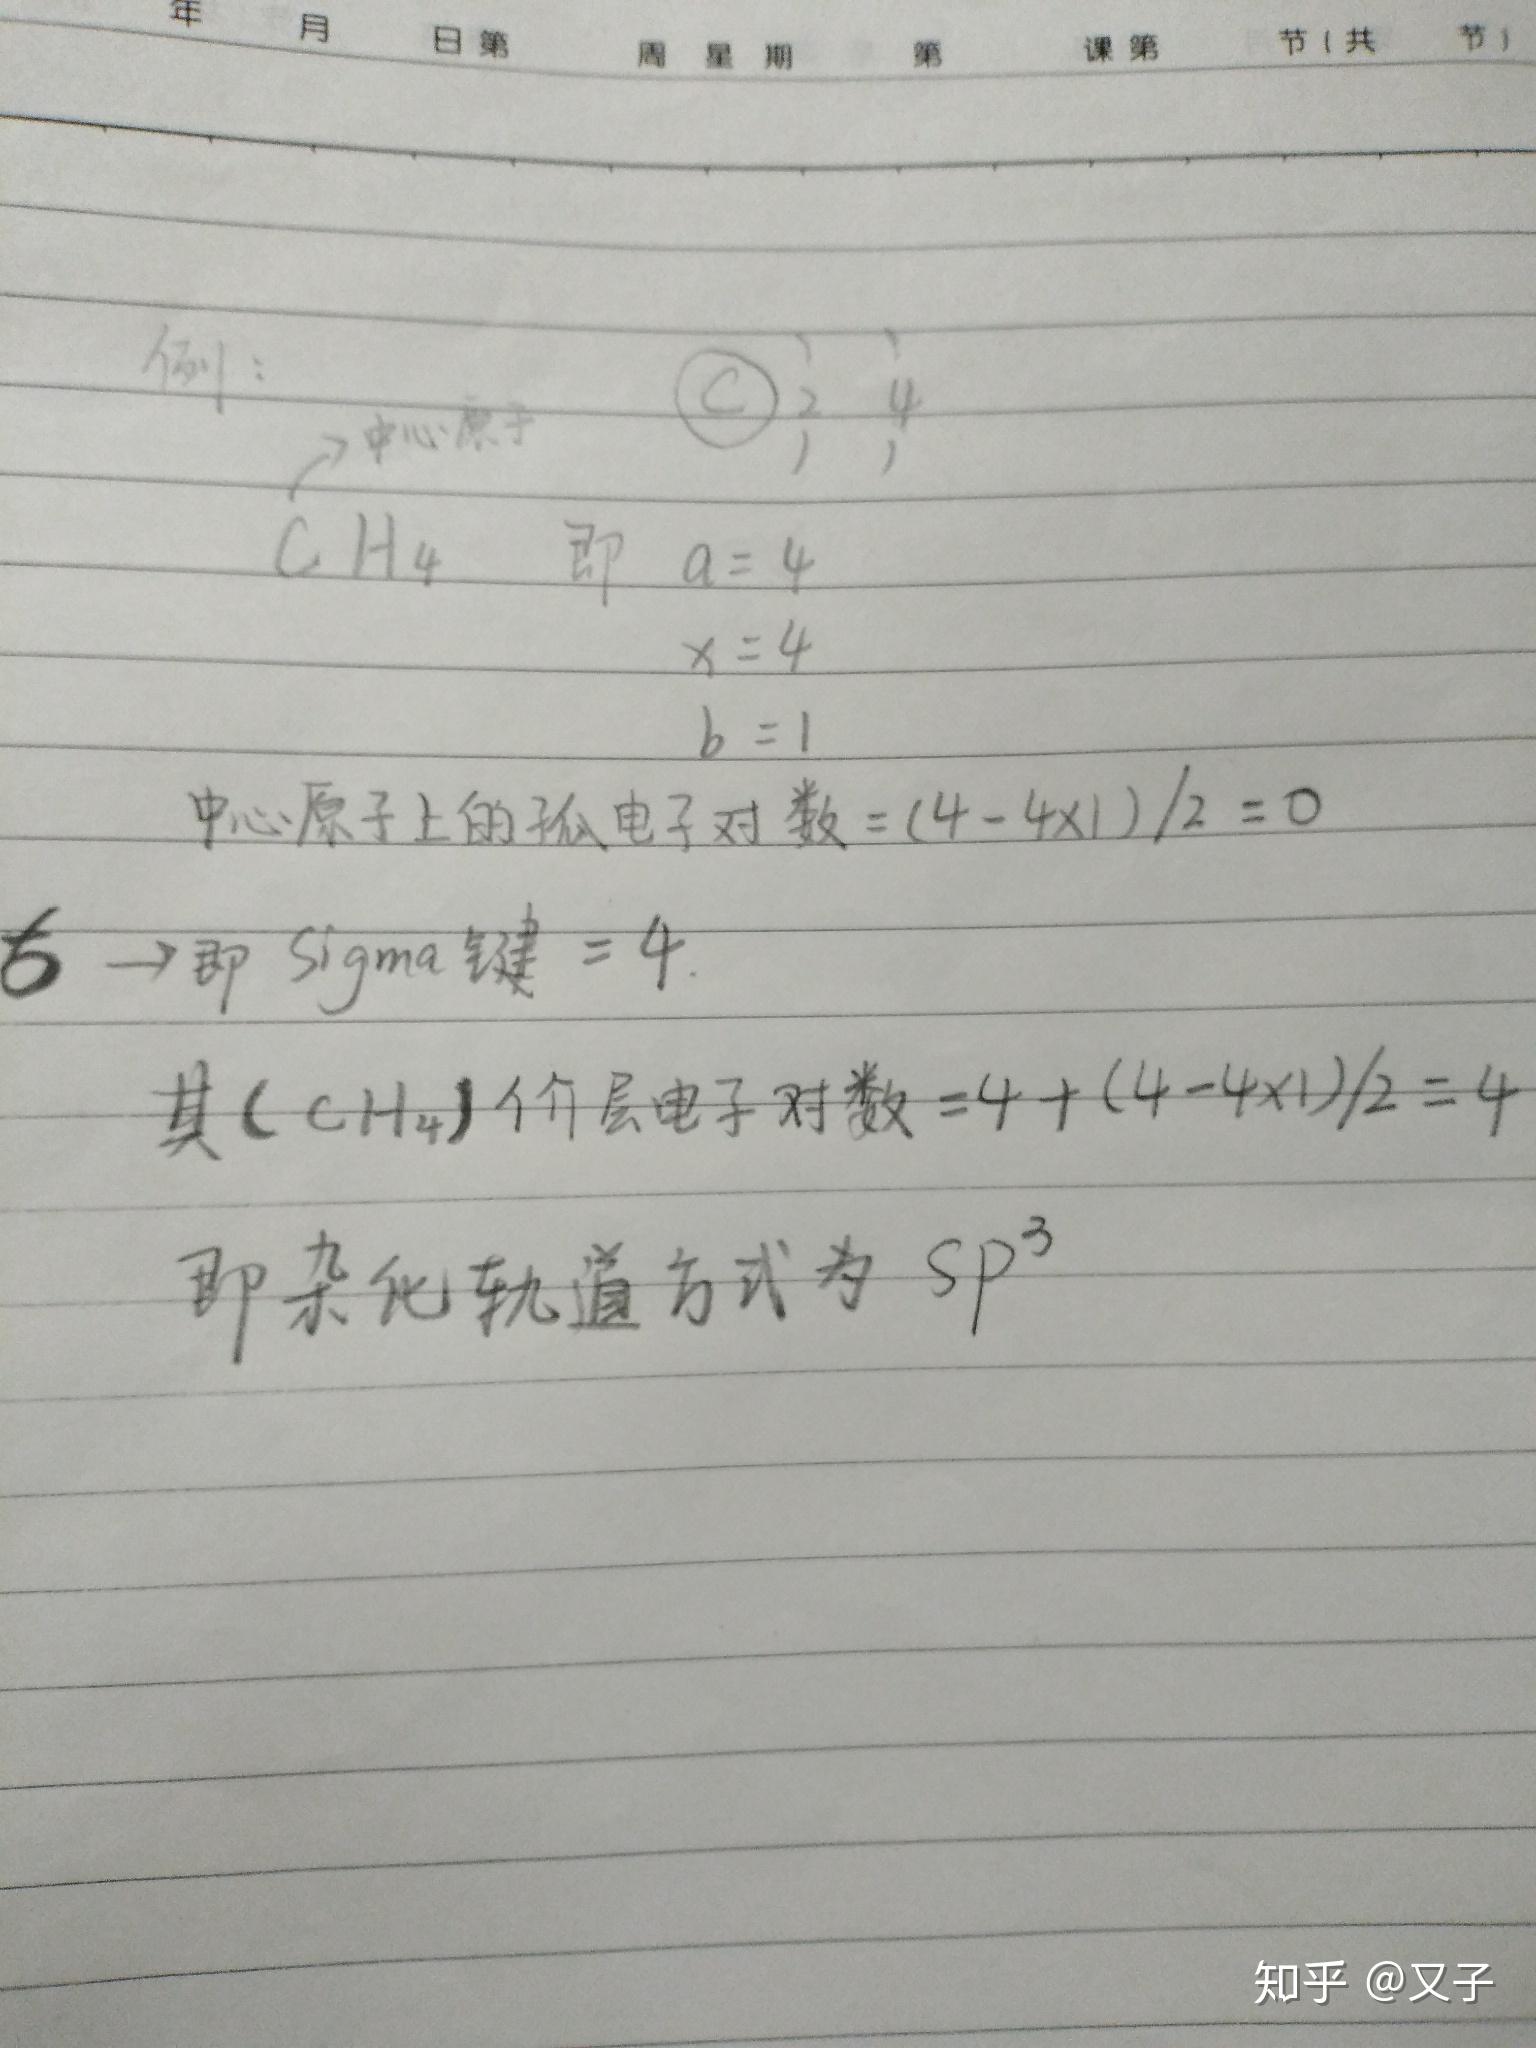 年 月 日 第 周 星 期 第 课 第 节(共 节)
例:
C 2 4
中心原子
CH₄ 即 a=4
x=4
b=1
中心原子上的孤电子对数=(4-4×1)/2=0
б →即 Sigma键=4.
其(CH₄)价层电子对数=4+(4-4×1)/2=4
即杂化轨道方式为 SP³
知乎 @又子